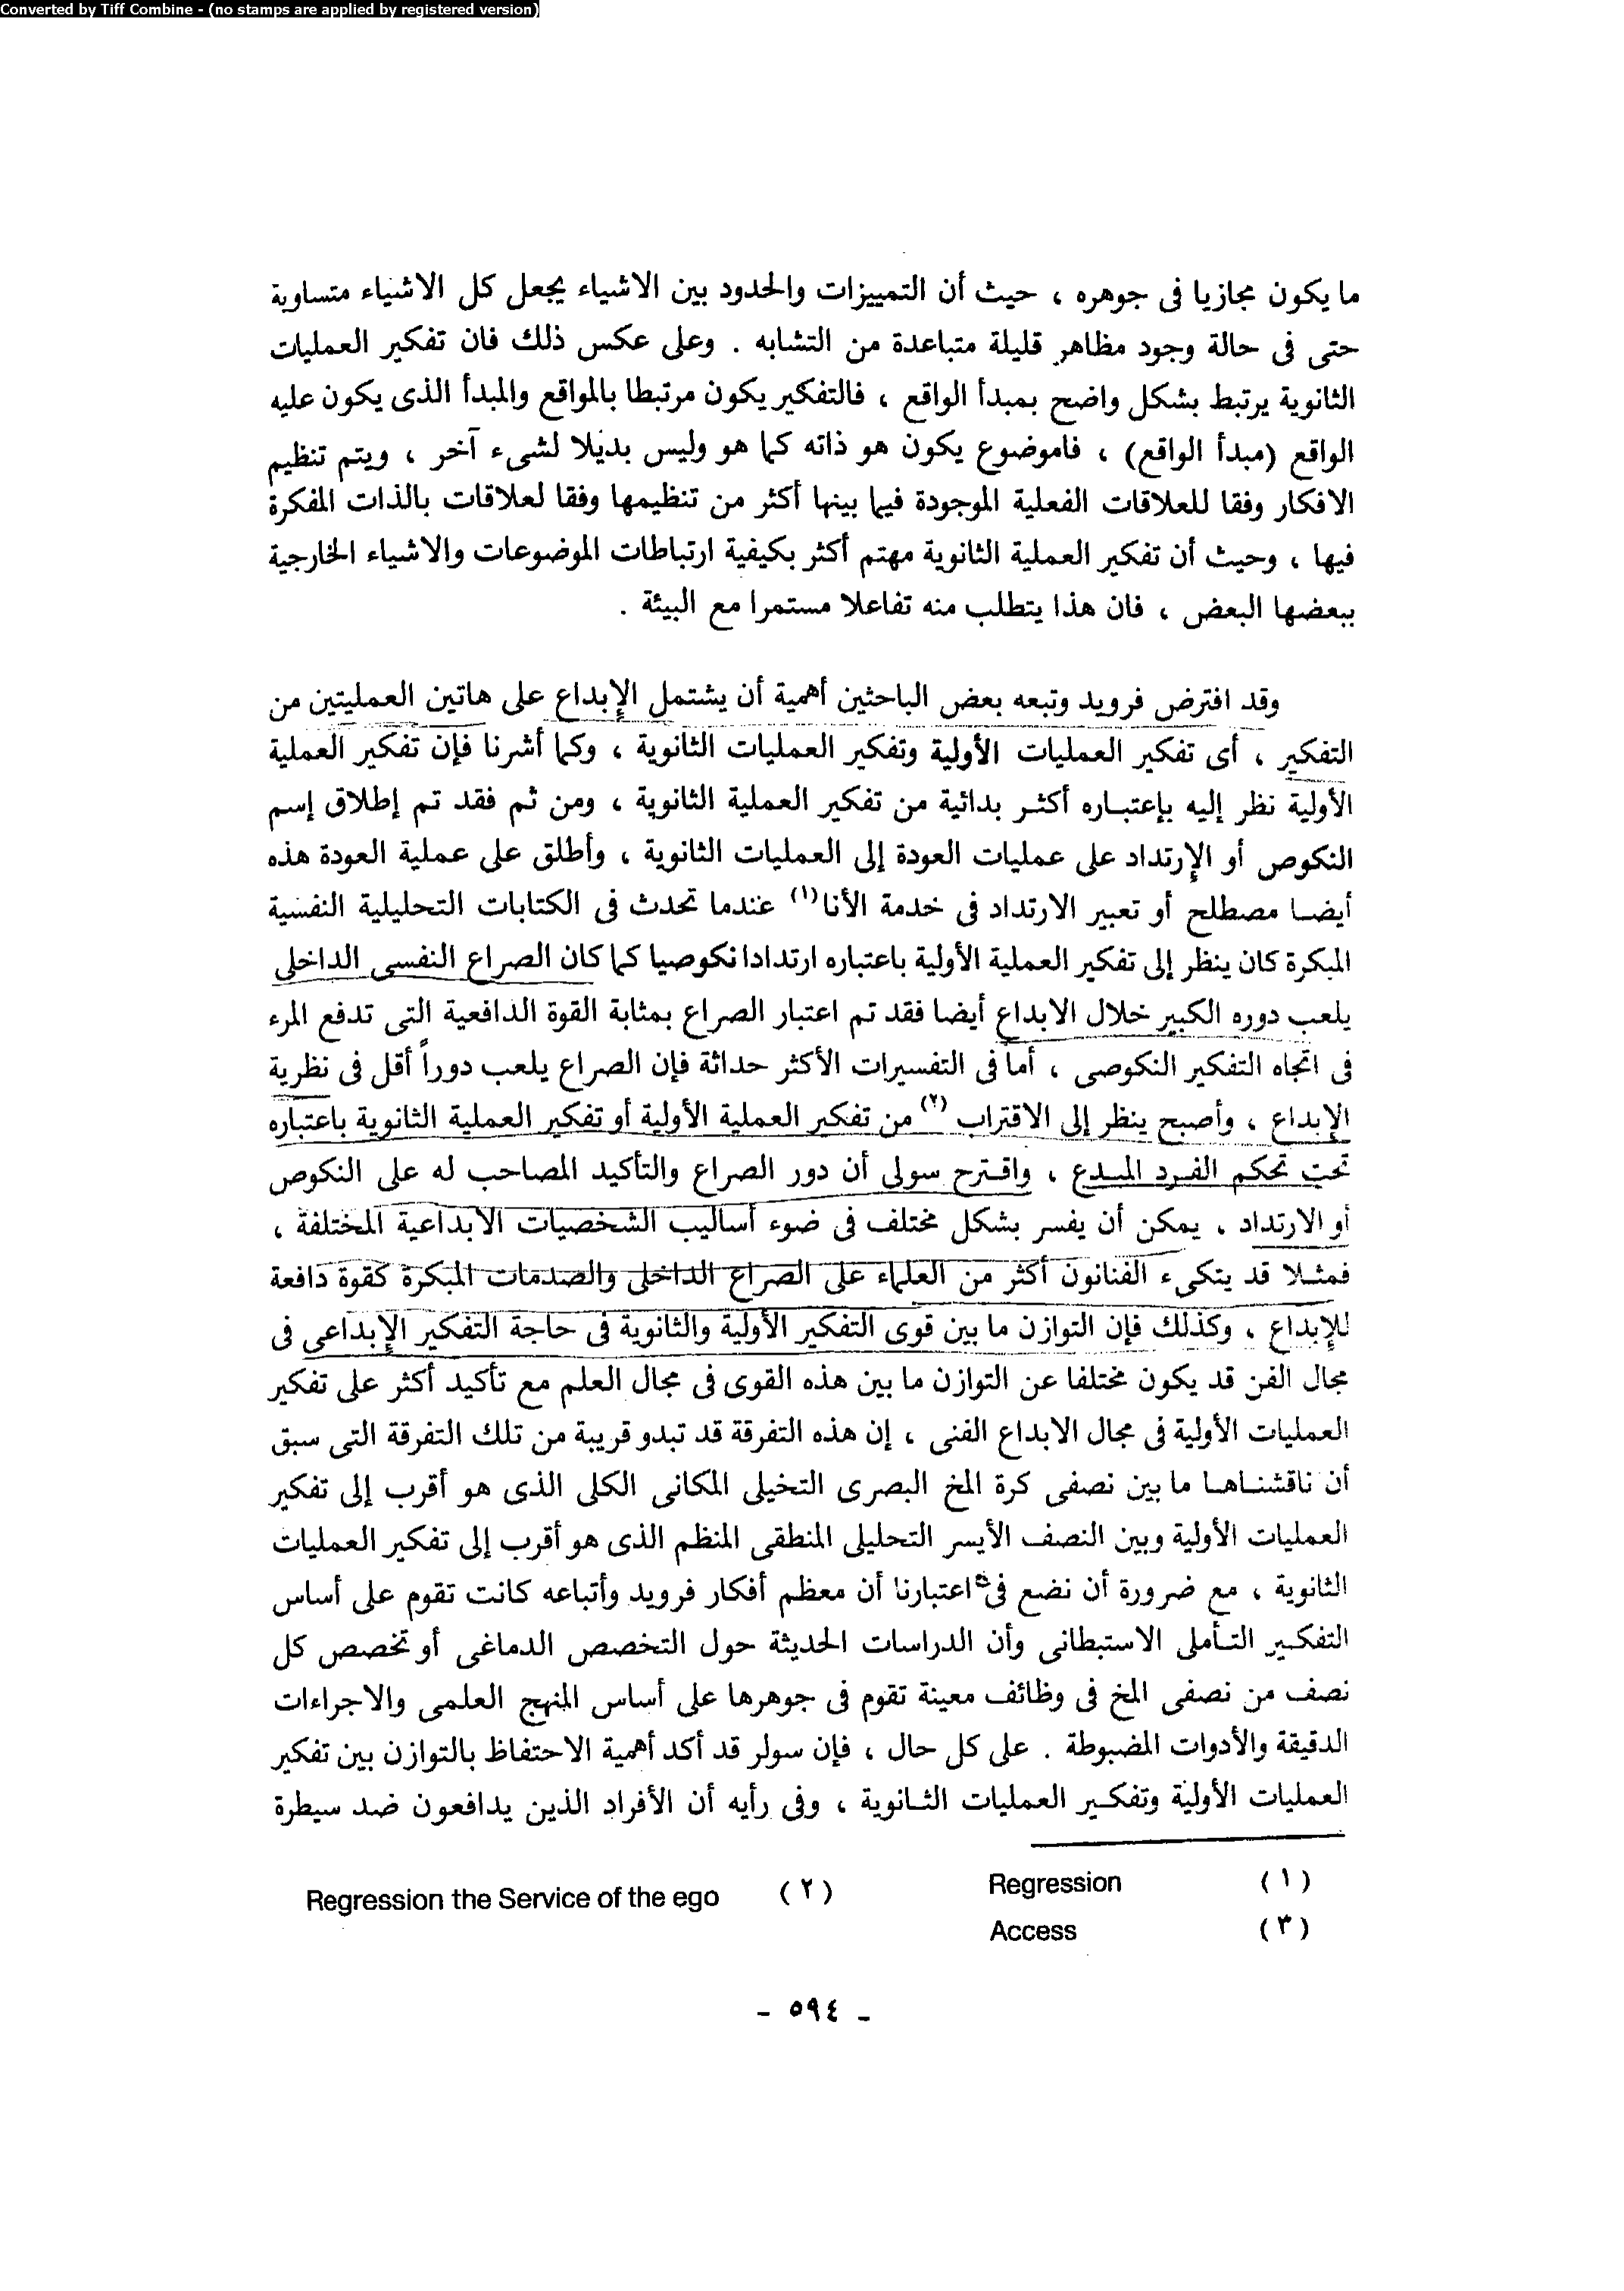 Converted by Tiff Combine - (no stamps are applied by registered version)
ما يكون مجازيا فى جوهره ، حيث أن التمييزات والحدود بين الاشياء يجعل كل الاشياء متساوية
حتى فى حالة وجود مظاهر قليلة متباعدة من التشابه . وعلى عكس ذلك فان تفكير العمليات
الثانوية يرتبط بشكل واضح بمبدأ الواقع ، فالتفكير يكون مرتبطا بالمواقع والمبدأ الذى يكون عليه
الواقع (مبدأ الواقع) ، فاموضوع يكون هو ذاته كما هو وليس بديلا لشىء آخر ، ويتم تنظيم
الافكار وفقا للعلاقات الفعلية الموجودة فيما بينها أكثر من تنظيمها وفقا لعلاقات بالذات المفكرة
فيها ، وحيث أن تفكير العملية الثانوية مهتم أكثر بكيفية ارتباطات الموضوعات والاشياء الخارجية
ببعضها البعض ، فان هذا يتطلب منه تفاعلا مستمرا مع البيئة .
وقد افترض فرويد وتبعه بعض الباحثين أهمية أن يشتمل الإبداع على هاتين العمليتين من
التفكير ، أى تفكير العمليات الأولية وتفكير العمليات الثانوية ، وكما أشرنا فإن تفكير العملية
الأولية نظر إليه بإعتباره أكثر بدائية من تفكير العملية الثانوية ، ومن ثم فقد تم إطلاق إسم
النكوص أو الإرتداد على عمليات العودة إلى العمليات الثانوية ، وأطلق على عملية العودة هذه
أيضا مصطلح أو تعبير الارتداد فى خدمة الأنا(١) عندما تحدث فى الكتابات التحليلية النفسية
المبكرة كان ينظر إلى تفكير العملية الأولية باعتباره ارتدادا نكوصيا كما كان الصراع النفسى الداخلى
يلعب دوره الكبير خلال الابداع أيضا فقد تم اعتبار الصراع بمثابة القوة الدافعية التى تدفع المرء
فى اتجاه التفكير النكوصى ، أما فى التفسيرات الأكثر حداثة فإن الصراع يلعب دوراً أقل فى نظرية
الإبداع ، وأصبح ينظر إلى الاقتراب (٢) من تفكير العملية الأولية أو تفكير العملية الثانوية باعتباره
تحت تحكم الفرد المبدع ، واقترح سولى أن دور الصراع والتأكيد المصاحب له على النكوص
أو الارتداد ، يمكن أن يفسر بشكل مختلف فى ضوء أساليب الشخصيات الابداعية المختلفة ،
فمثلا قد يتكىء الفنانون أكثر من العلماء على الصراع الداخلى والصدمات المبكرة كقوة دافعة
للإبداع ، وكذلك فإن التوازن ما بين قوى التفكير الأولية والثانوية فى حاجة التفكير الإبداعى فى
مجال الفن قد يكون مختلفا عن التوازن ما بين هذه القوى فى مجال العلم مع تأكيد أكثر على تفكير
العمليات الأولية فى مجال الابداع الفنى ، إن هذه التفرقة قد تبدو قريبة من تلك التفرقة التى سبق
أن ناقشناها ما بين نصفى كرة المخ البصرى التخيلى المكانى الكلى الذى هو أقرب إلى تفكير
العمليات الأولية وبين النصف الأيسر التحليلى المنطقى المنظم الذى هو أقرب إلى تفكير العمليات
الثانوية ، مع ضرورة أن نضع فى اعتبارنا أن معظم أفكار فرويد وأتباعه كانت تقوم على أساس
التفكير التأملى الاستبطانى وأن الدراسات الحديثة حول التخصص الدماغى أو تخصص كل
نصف من نصفى المخ فى وظائف معينة تقوم فى جوهرها على أساس المنهج العلمى والاجراءات
الدقيقة والأدوات المضبوطة . على كل حال ، فإن سولر قد أكد أهمية الاحتفاظ بالتوازن بين تفكير
العمليات الأولية وتفكير العمليات الثانوية ، وفى رأيه أن الأفراد الذين يدافعون ضد سيطرة
(١) Regression
(٢) Regression the Service of the ego
(٣) Access
- ٥٩٤ -